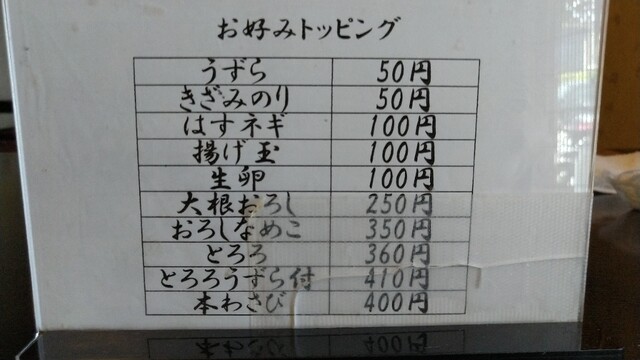 お好みトッピング
うずら 50円
きざみのり 50円
はすネギ 100円
揚げ玉 100円
生卵 100円
大根おろし 250円
おろしなめこ 350円
とろろ 360円
とろろうずら付 410円
本わさび 400円